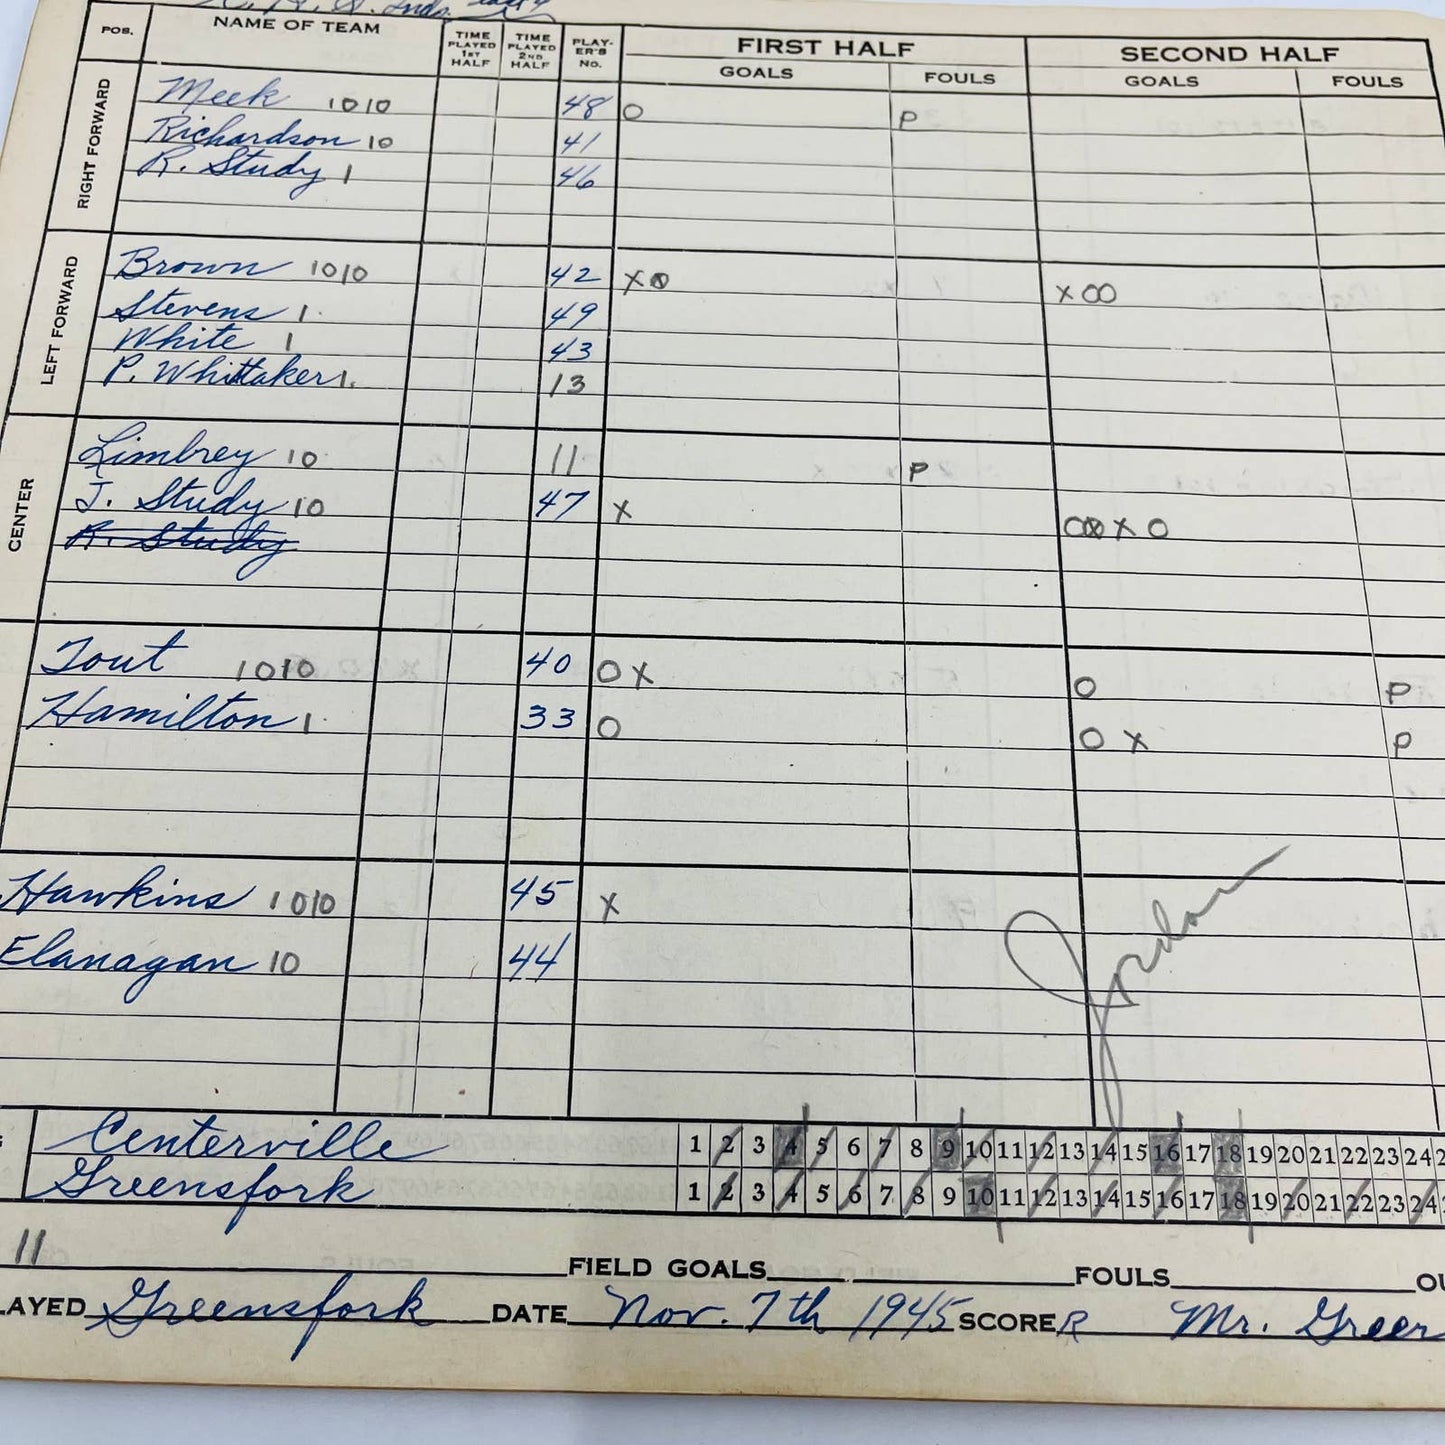 POS. NAME OF TEAM TIME PLAYED 1ST HALF TIME PLAYED 2ND HALF PLAY-ER'S NO. FIRST HALF SECOND HALF
GOALS FOULS GOALS FOULS
RIGHT FORWARD
Meek 1010 48 O P
Richardson 10 41
R. Study 1 46
LEFT FORWARD
Brown 1010 42 XO XOO
Stevens 1 49
White 1 43
P. Whittaker 1. 13
CENTER
Limbrey 10 11 P
J. Study 10 47 X OOXO
R. Study
Tout 1010 40 OX O P
Hamilton 1 33 O OX P
Hawkins 1010 45 X
Flanagan 10 44
Jordan
Centerville 1 2 3 4 5 6 7 8 9 10 11 12 13 14 15 16 17 18 19 20 21 22 23 24
Greensfork 1 2 3 4 5 6 7 8 9 10 11 12 13 14 15 16 17 18 19 20 21 22 23 24
11 FIELD GOALS FOULS
LAYED Greensfork DATE Nov. 7th 1945 SCORER Mr. Greer